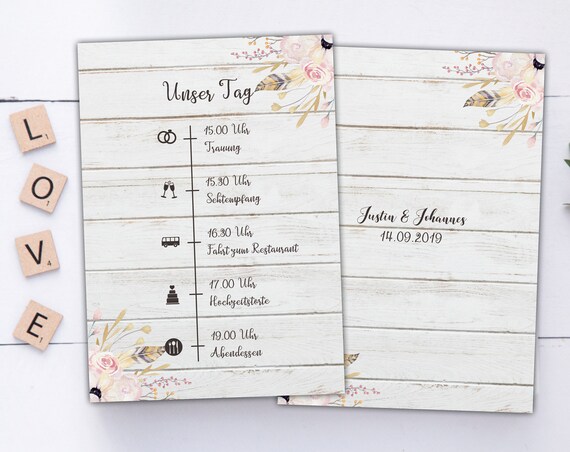 L
O
V
E
Unser Tag
15.00 Uhr
Trauung
15.30 Uhr
Sektempfang
16.30 Uhr
Fahrt zum Restaurant
17.00 Uhr
Hochzeitstorte
19.00 Uhr
Abendessen
Justin & Johannes
14.09.2019